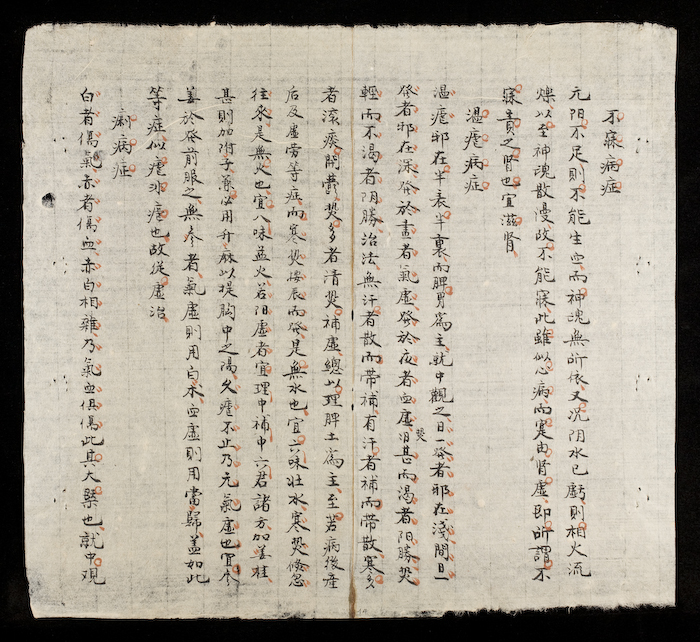 不寐病症
元阳不足則不能生血而神魂無所依又况阴水已虧則相火流
爍以至神魂散漫故不能寐此雖似心病而寔由肾虛即所謂不
寐責之肾也宜滋肾
温瘧病症
温瘧邪在半表半裏而脾胃爲主就中觀之日一發者邪在淺間日一
發者邪在深發於晝者氣虛發於夜者血虛熱甚而渴者阳勝熱
輕而不渴者阴勝治法無汗者散而帶補有汗者補而帶散寒多
者滚痰開欝熱多者清熱補虛總以理脾土爲主至若病後產
后及虛劳等症而寒熱按辰而發是無水也宜六味壯水寒熱倐忽
往來是無火也宜八味益火若阳虛者宜理中補中六君諸方加姜桂
甚則加附子兼必用升麻以提胸中之陽久瘧不止乃元氣虛也宜參
姜於發前服之無參者氣虛則用白术血虛則用當歸盖如此
等症似瘧非瘧也故從虛治
痢病症
白者傷氣赤者傷血赤白相雜乃氣血俱傷此其大槩也就中观